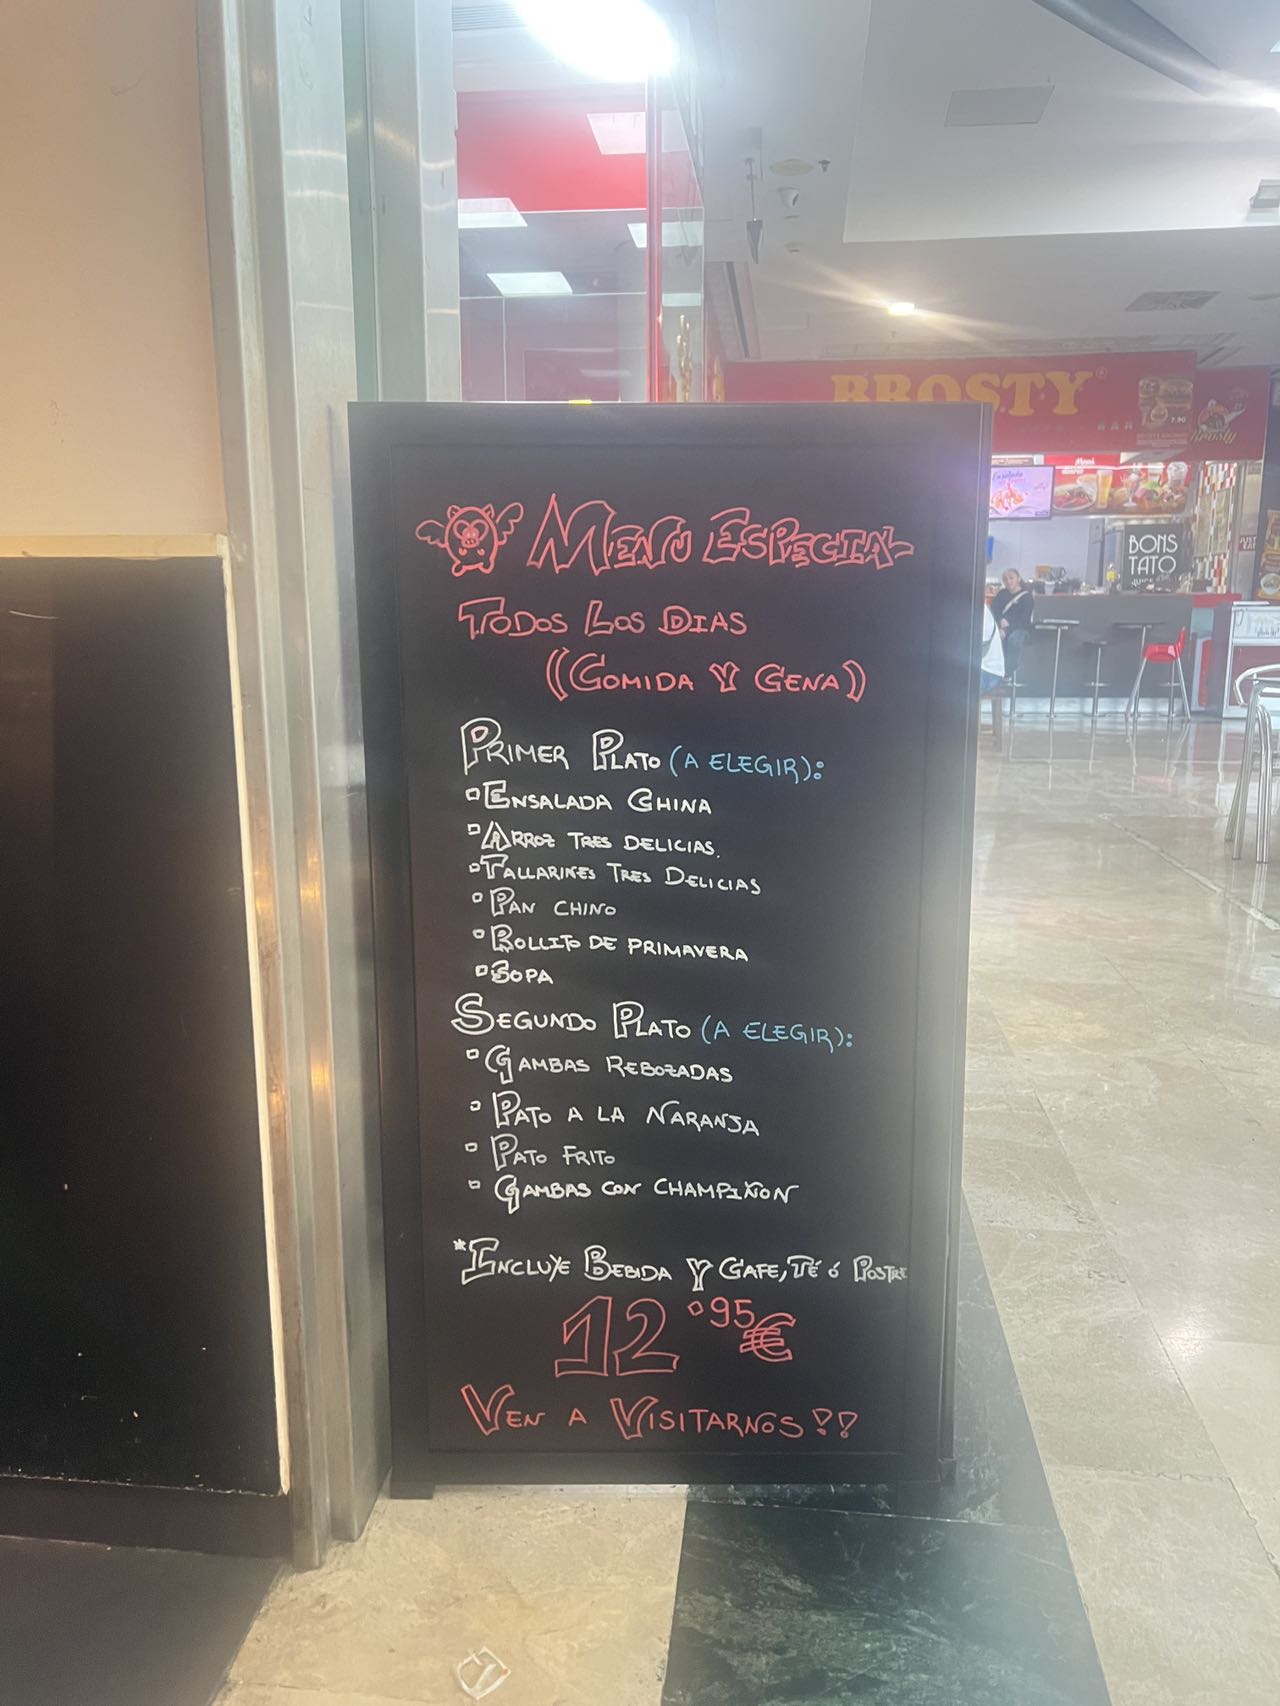 MENU ESPECIAL
TODOS LOS DIAS
((COMIDA Y CENA))
PRIMER PLATO (A ELEGIR):
ENSALADA CHINA
ARROZ TRES DELICIAS.
TALLARINES TRES DELICIAS
PAN CHINO
ROLLITO DE PRIMAVERA
SOPA
SEGUNDO PLATO (A ELEGIR):
GAMBAS REBOZADAS
PATO A LA NARANJA
PATO FRITO
GAMBAS CON CHAMPIÑON
*INCLUYE BEBIDA Y CAFE, TÉ ó POSTRE
12'95€
VEN A VISITARNOS!!
BROSTY
BAR
7.90
Brosty
Menú
BONS
TATO
JUST
EAT